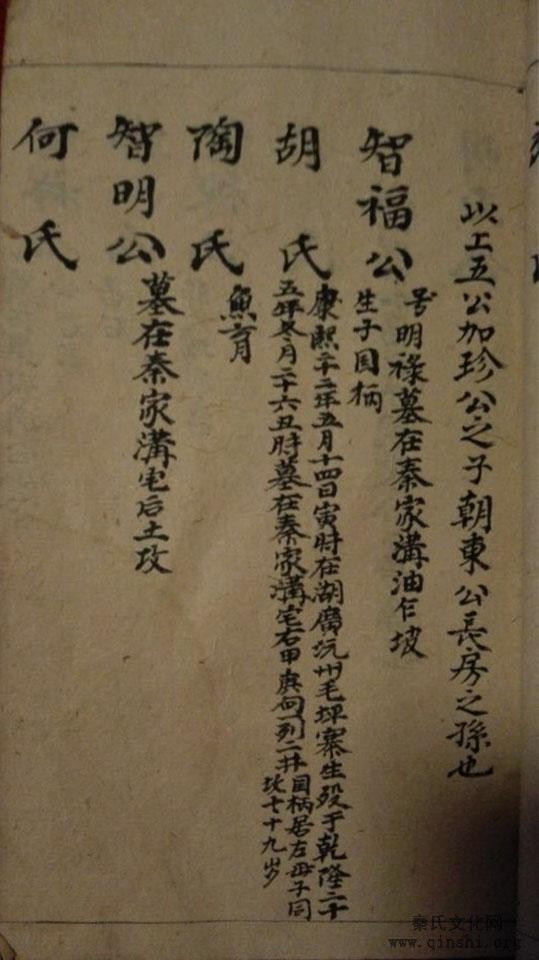 以上五公加珍公之子朝東公長房之孫也
智福公
号明祿墓在秦家溝油仁坡
生子国柄
胡氏
康熙二十二年五月十四日寅时在湖廣沅州毛坪寨生殁于乾隆二十
五年冬月二十六丑时墓在秦家溝宅右甲庚向一列二井国柄居左母子同
攻七十九岁
陶氏
魚育
智明公
墓在秦家溝宅后土攻
何氏
秦氏文化网
www.qinshi.org